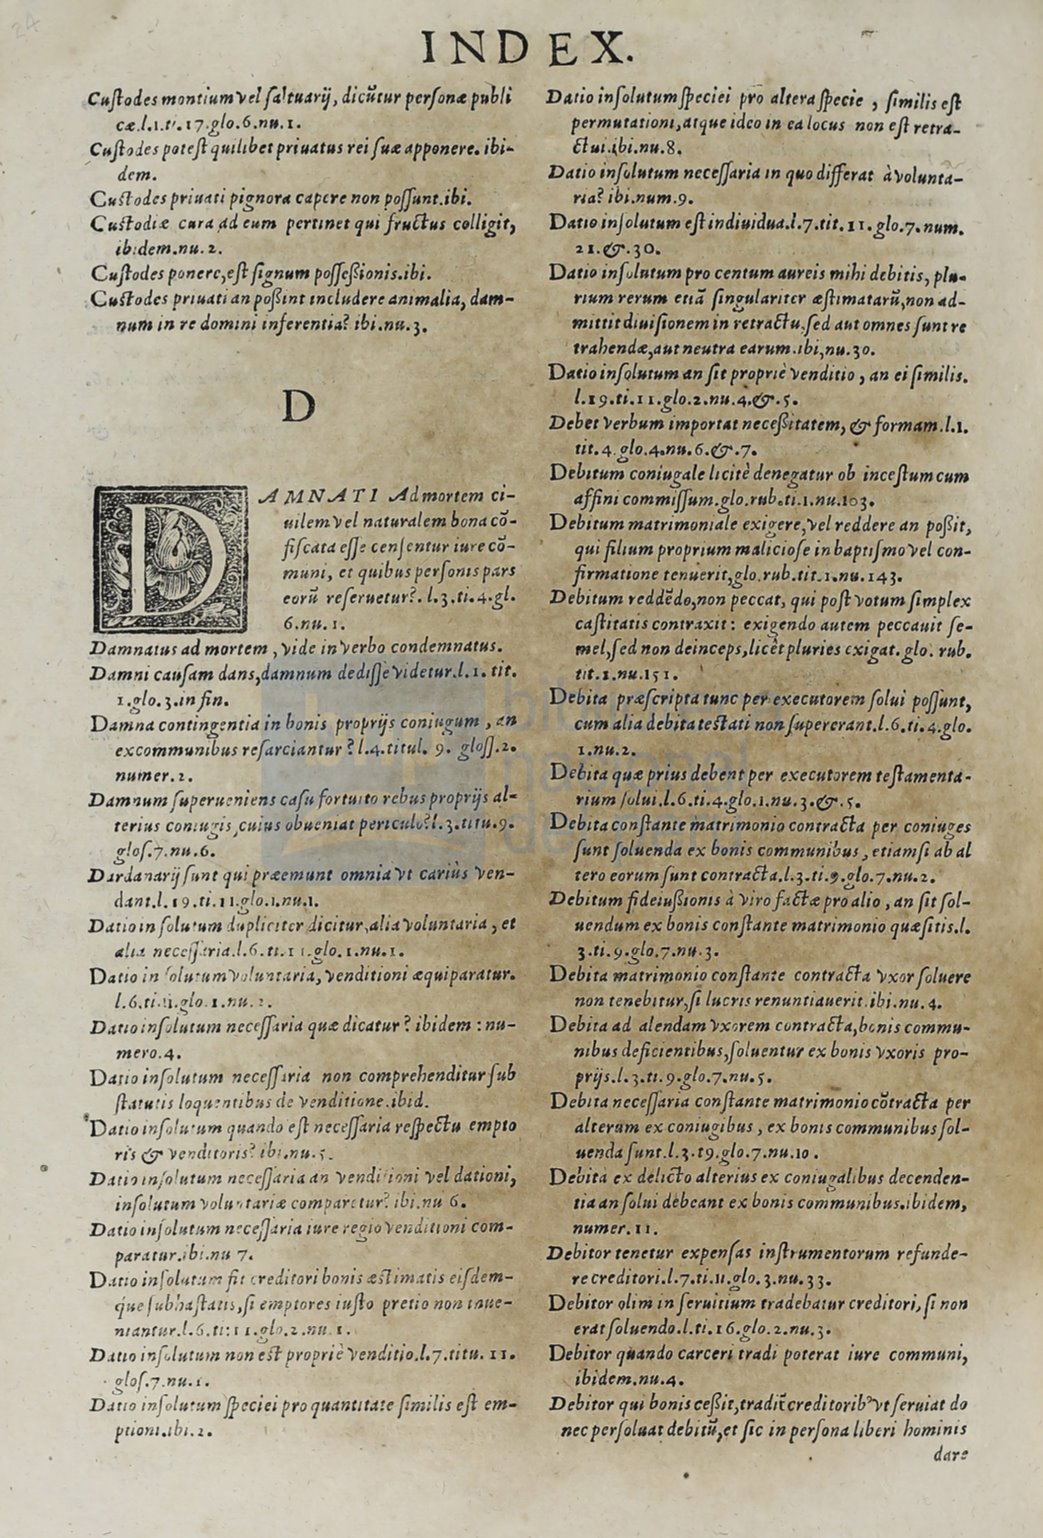 INDEX.
Custodes montium vel saltuarij, dicũtur personæ publi
cæ.l.1.ti.17.glo.6.nu.1.
Custodes potest quilibet priuatus rei suæ apponere. ibi-
dem.
Custodes priuati pignora capere non possunt.ibi.
Custodiæ cura ad eum pertinet qui fructus colligit,
ibidem.nu.2.
Custodes ponere,est signum possessionis.ibi.
Custodes priuati an possint includere animalia, dam-
num in re domini inferentia? ibi.nu.3.
D
DAMNATI Ad mortem ci-
uilem vel naturalem bona cõ-
fiscata esse censentur iure cõ-
muni, et quibus personis pars
eorũ reseruetur?. l.3.ti.4.gl.
6.nu.1.
Damnatus ad mortem , vide in verbo condemnatus.
Damni causam dans,damnum dedisse videtur.l.1. tit.
1.glo.3.in fin.
Damna contingentia in bonis proprijs coniugum , an
ex communibus resarciantur ? l.4.titul. 9. gloss.2.
numer.2.
Damnum superueniens casu fortuito rebus proprijs al-
terius coniugis,cuius obueniat periculo?l.3.titu.9.
glos.7.nu.6.
Dardanarij sunt qui præemunt omnia vt cariùs ven-
dant.l.19.ti.11.glo.1.nu.1.
Datio in solutum dupliciter dicitur,alia voluntaria, et
alia necessaria.l.6.ti.11.glo.1.nu.1.
Datio in solutum voluntaria, venditioni æquiparatur.
l.6.ti.11.glo.1.nu.2.
Datio insolutum necessaria quæ dicatur ? ibidem : nu-
mero.4.
Datio insolutum necessaria non comprehenditur sub
statutis loquentibus de venditione.ibid.
Datio insolutum quando est necessaria respectu empto
ris & venditoris? ibi.nu.5.
Datio insolutum necessaria an venditioni vel dationi,
insolutum voluntariæ comparetur? ibi.nu 6.
Datio insolutum necessaria iure regio venditioni com-
paratur.ibi.nu 7.
Datio insolutum fit creditori bonis æstimatis eisdem-
q́ue subhastatis,si emptores iusto pretio non inue-
niantur.l.6.ti:11.glo.2.nu.1.
Datio insolutum non est propriè venditio.l.7.titu. 11.
glos.7.nu.1.
Datio insolutum speciei pro quantitate similis est em-
ptioni.ibi.2.
Datio insolutum speciei pro altera specie , similis est
permutationi,atque ideo in ea locus non est retra-
ctui.ibi.nu.8.
Datio insolutum necessaria in quo differat à volunta-
ria? ibi.num.9.
Datio insolutum est indiuidua.l.7.tit.11.glo.7.num.
21.&.30.
Datio insolutum pro centum aureis mihi debitis, plu-
rium rerum etiã singulariter æstimatarũ,non ad-
mittit diuisionem in retractu,sed aut omnes sunt re
trahendæ,aut neutra earum.ibi,nu.30.
Datio insolutum an sit propriè venditio , an ei similis.
l.19.ti.11.glo.2.nu.4.&.5.
Debet verbum importat necessitatem, & formam.l.1.
tit.4.glo.4.nu.6.&.7.
Debitum coniugale licitè denegatur ob incestum cum
affini commissum.glo.rub.ti.1.nu.103.
Debitum matrimoniale exigere,vel reddere an possit,
qui filium proprium maliciose in baptismo vel con-
firmatione tenuerit,glo.rub.tit.1.nu.143.
Debitum reddẽdo,non peccat, qui post votum simplex
castitatis contraxit : exigendo autem peccauit se-
mel,sed non deinceps,licèt pluries exigat.glo. rub.
tit.1.nu.151.
Debita præscripta tunc per executorem solui possunt,
cum alia debita testati non supererant.l.6.ti.4.glo.
1.nu.2.
Debita quæ prius debent per executorem testamenta-
rium solui.l.6.ti.4.glo.1.nu.3.&.5.
Debita constante matrimonio contracta per coniuges
sunt soluenda ex bonis communibus , etiamsi ab al
tero eorum sunt contracta.l.3.ti.9.glo.7.nu.2.
Debitum fideiussionis à viro factæ pro alio , an sit sol-
uendum ex bonis constante matrimonio quæsitis.l.
3.ti.9.glo.7.nu.3.
Debita matrimonio constante contracta vxor soluere
non tenebitur,si lucris renuntiauerit.ibi.nu.4.
Debita ad alendam vxorem contracta,bonis commu-
nibus deficientibus,soluentur ex bonis vxoris pro-
prijs.l.3.ti.9.glo.7.nu.5.
Debita necessaria constante matrimonio cõtracta per
alterum ex coniugibus , ex bonis communibus sol-
uenda sunt.l.3.t9.glo.7.nu.10.
Debita ex delicto alterius ex coniugalibus decenden-
tia an solui debeant ex bonis communibus.ibidem,
numer.11.
Debitor tenetur expensas instrumentorum refunde-
re creditori.l.7.ti.11.glo.3.nu.33.
Debitor olim in seruitium tradebatur creditori, si non
erat soluendo.l.ti.16.glo.2.nu.3.
Debitor quando carceri tradi poterat iure communi,
ibidem.nu.4.
Debitor qui bonis cessit,tradit̃ creditorib⁹ vt seruiat do
nec persoluat debitũ,et sic in persona liberi hominis
dare